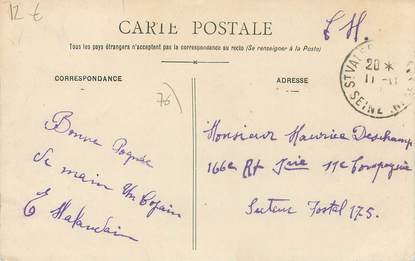 12 €
F.M.
CARTE POSTALE
Tous les pays étrangers n'acceptent pas la correspondance au recto (Se renseigner à la Poste)
CORRESPONDANCE
ADRESSE
ST VALER
20 *
11
SEINE
76
Bonne Poignée
de main Un Copain
E
Monsieur Maurice Deschamp
166e Rt Inie 11e Compagnie
Secteur Postal 175.